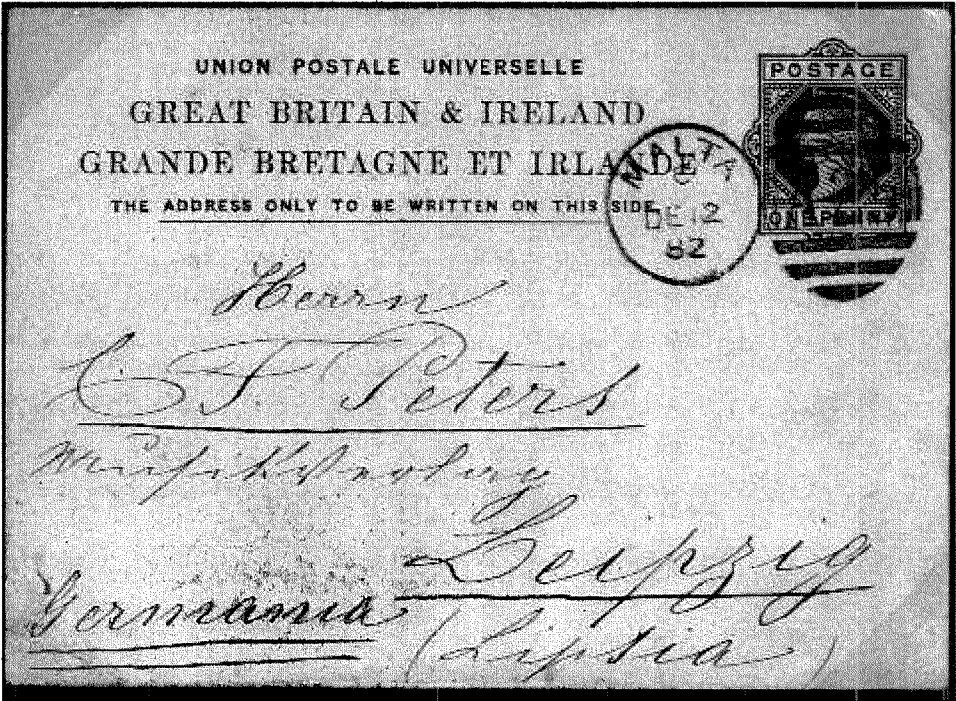 UNION POSTALE UNIVERSELLE
GREAT BRITAIN & IRELAND
GRANDE BRETAGNE ET IRLANDE
THE ADDRESS ONLY TO BE WRITTEN ON THIS SIDE
POSTAGE
ONE PENNY
MALTA
C
DE 12
82
Herrn
C. F. Peters
Musikverlag
Leipzig
Germania
(Lipsia)